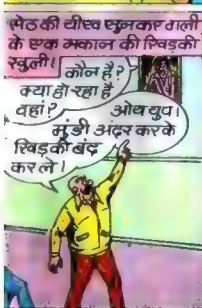 सेठ की चीख सुनकर गली
के एक मकान की खिड़की
खुली।
कौन है?
क्या हो रहा है
वहां?
ओय चुप।
मुंडी अंदर करके
खिड़की बंद
कर ले।